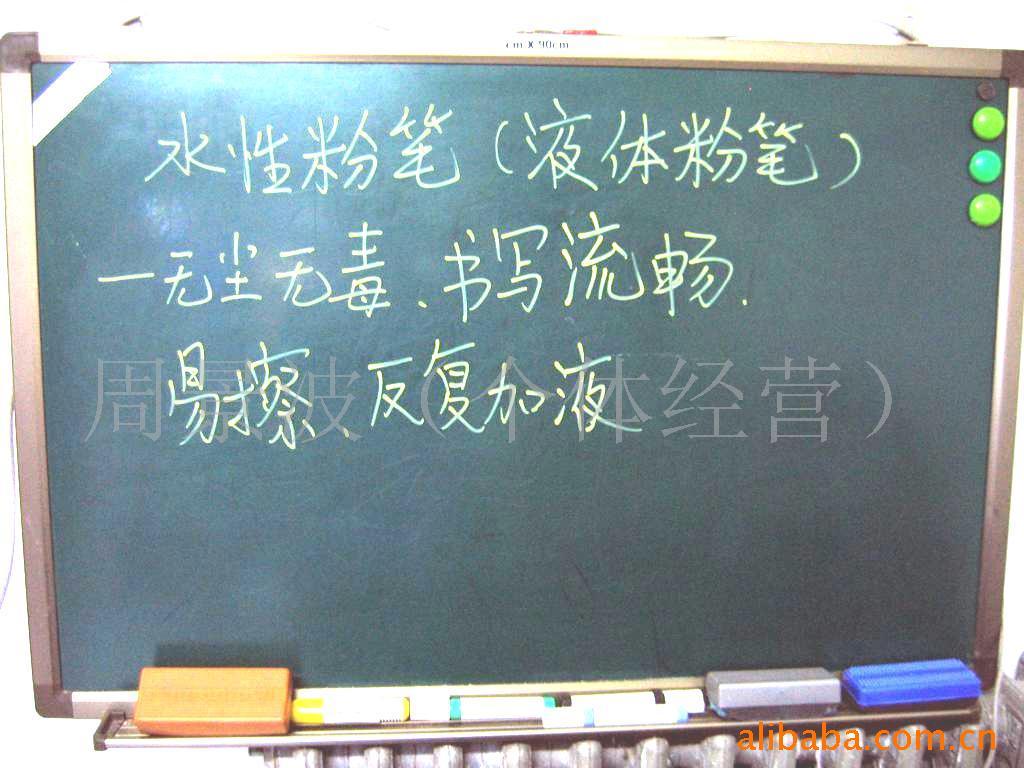 cm X 90cm
水性粉笔(液体粉笔)
一无尘无毒、书写流畅.
易擦、反复加液
周景波(个体经营)
alibaba.com.cn